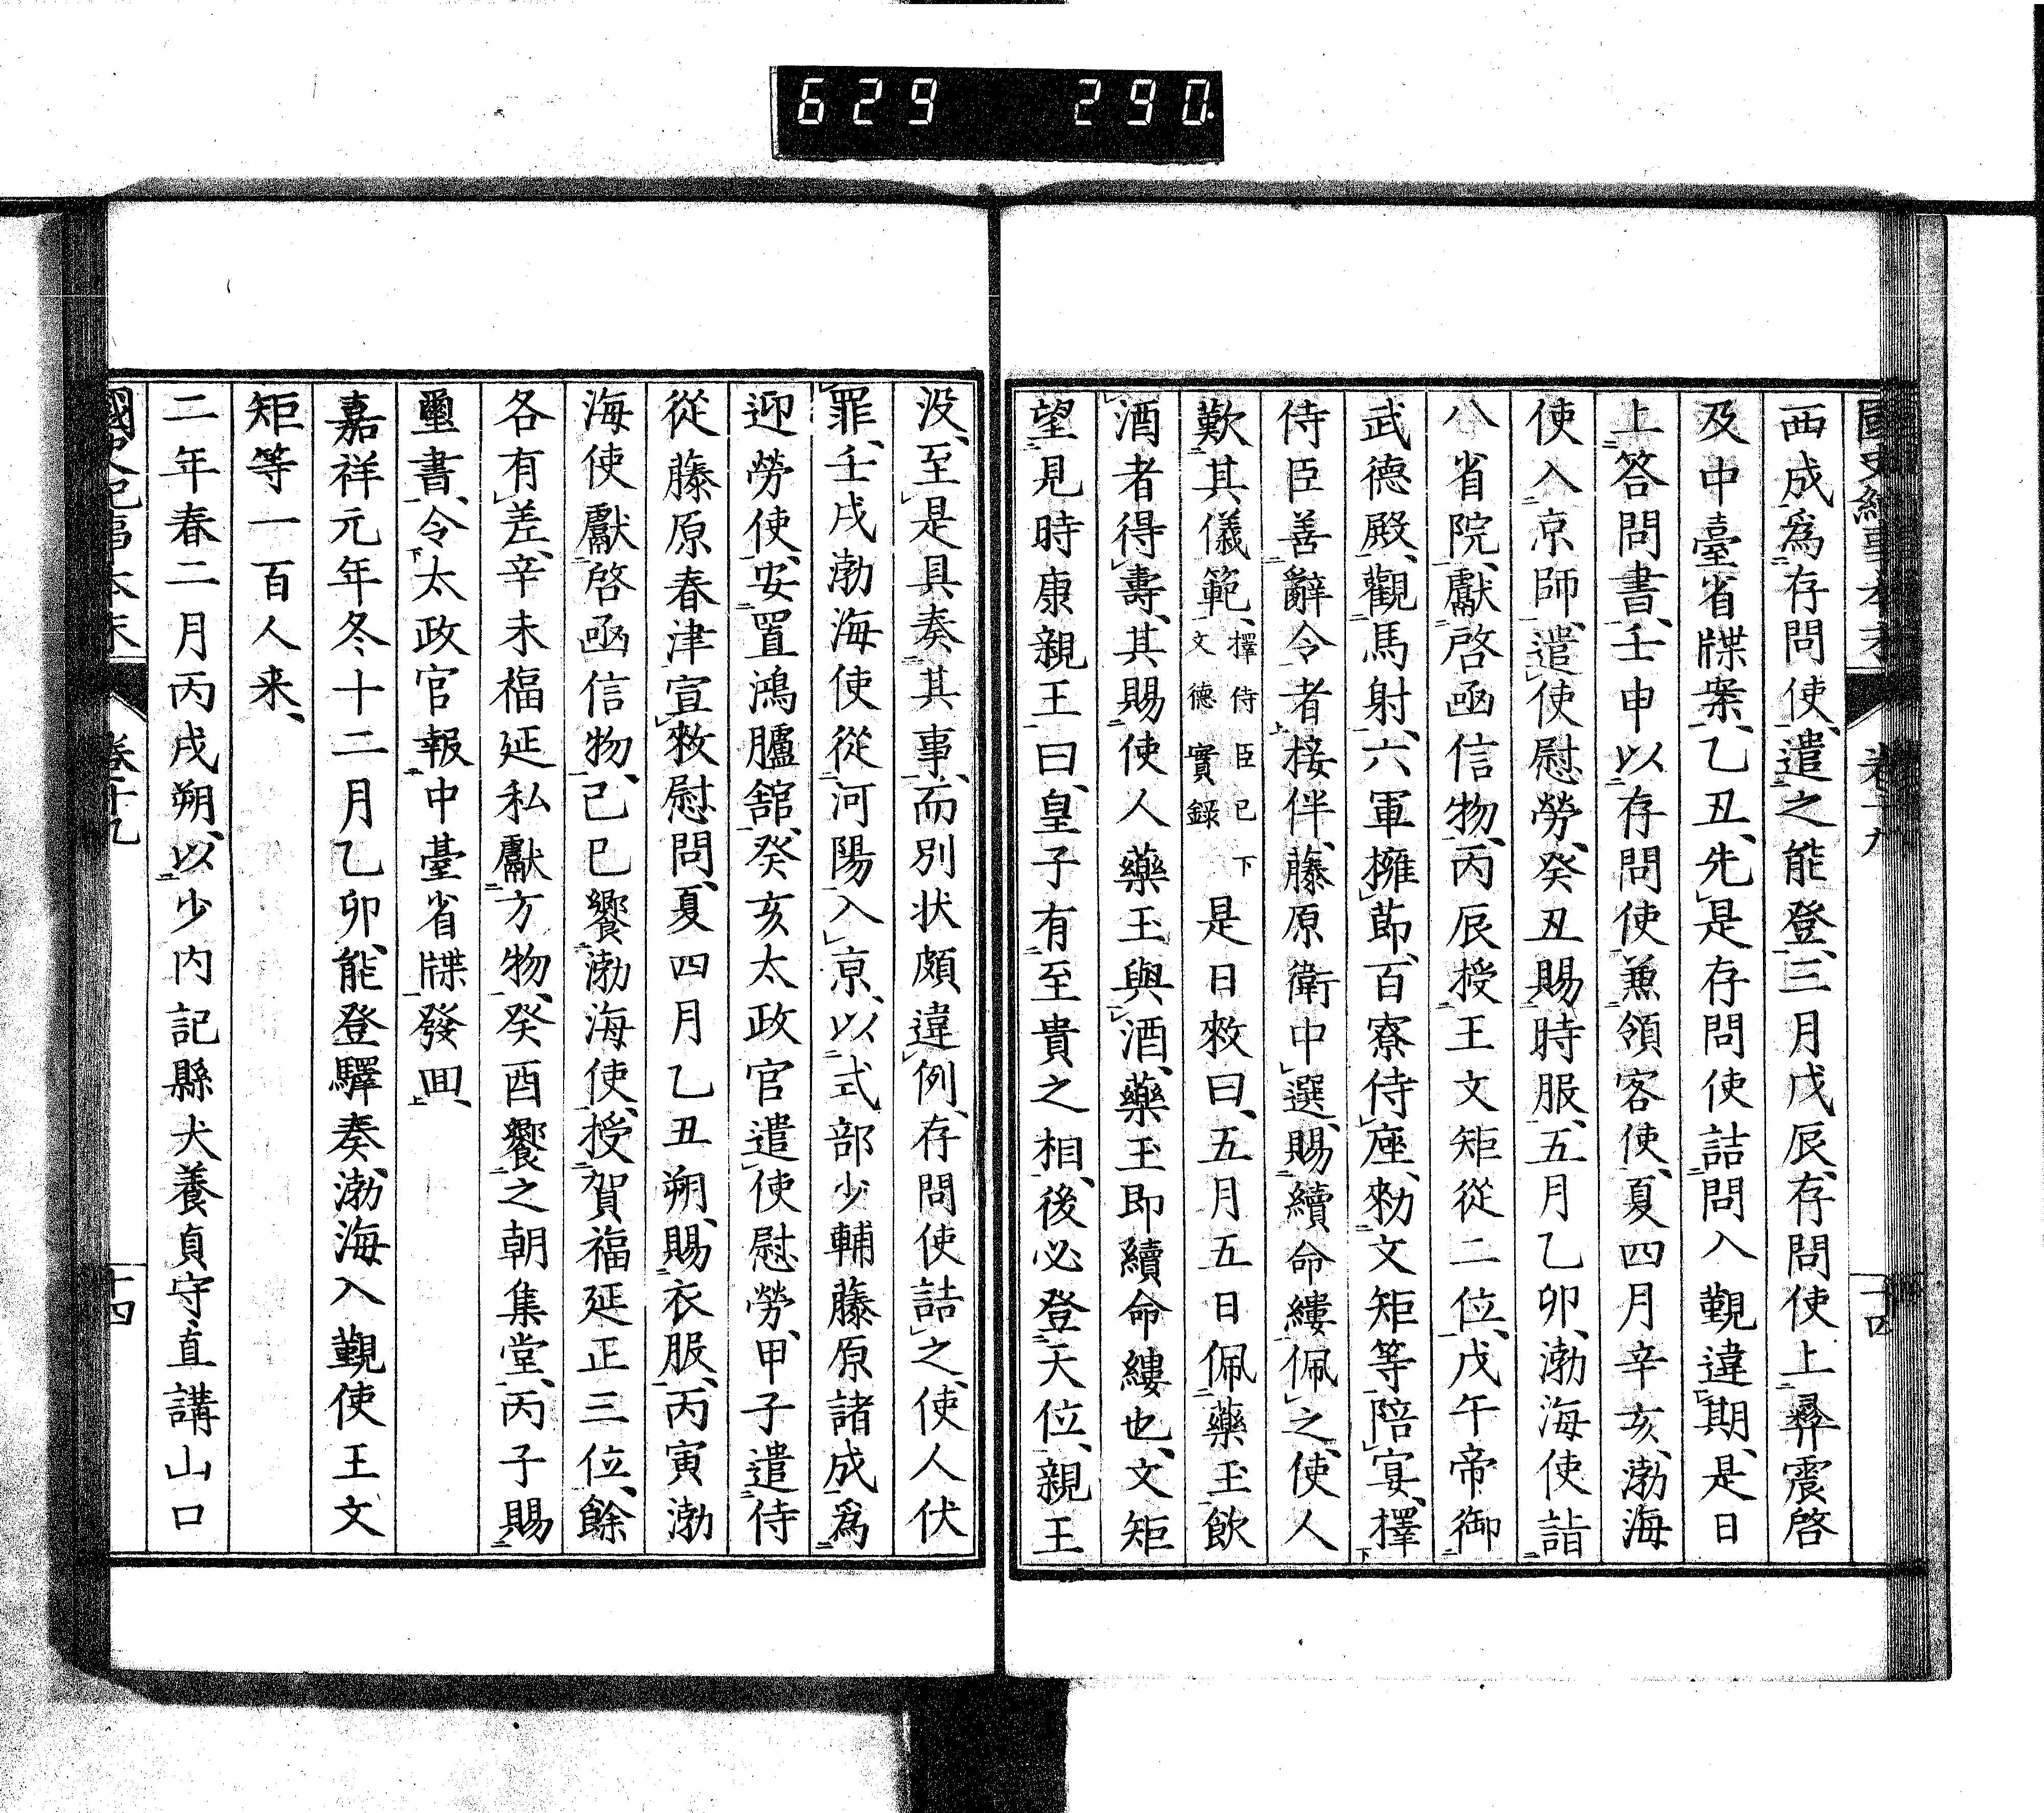 629 290
國史紀事本末 卷十九 十四
西成爲存問使、遣之能登、三月戊辰、存問使上彝震啓
及中臺省牒案、乙丑、先是存問使詰問入覲違期、是日
上答問書、壬申以存問使兼領客使、夏四月辛亥、渤海
使入京師、遣使慰勞、癸丑賜時服、五月乙卯、渤海使詣
八省院、獻啓凾信物、丙辰授王文矩從二位、戊午帝御
武德殿、觀馬射、六軍擁節、百寮侍座、勑文矩等陪宴、擇
侍臣善辭令者接伴、藤原衛中選、賜續命縷佩之、使人
歎其儀範、擇侍臣已下文德實録是日敕曰、五月五日佩藥玉飲
酒者得壽、其賜使人藥玉與酒、藥玉即續命縷也、文矩
望見時康親王曰、皇子有至貴之相、後必登天位、親王
没、至是具奏其事、而別状頗違例、存問使詰之、使人伏
罪、壬戌渤海使從河陽入京、以式部少輔藤原諸成爲
迎勞使、安置鴻臚舘、癸亥太政官遣使慰勞、甲子遣侍
從藤原春津宣敕慰問、夏四月乙丑朔、賜衣服、丙寅渤
海使獻啓凾信物、己巳饗渤海使、授賀福延正三位、餘
各有差、辛未福延私獻方物、癸酉饗之朝集堂、丙子賜
璽書、令太政官報中臺省牒發回、
嘉祥元年冬十二月乙卯、能登驛奏、渤海入覲使王文
矩等一百人来、
二年春二月丙戌朔、以少内記縣犬養貞守、直講山口
國史紀事本末 卷十九 十四